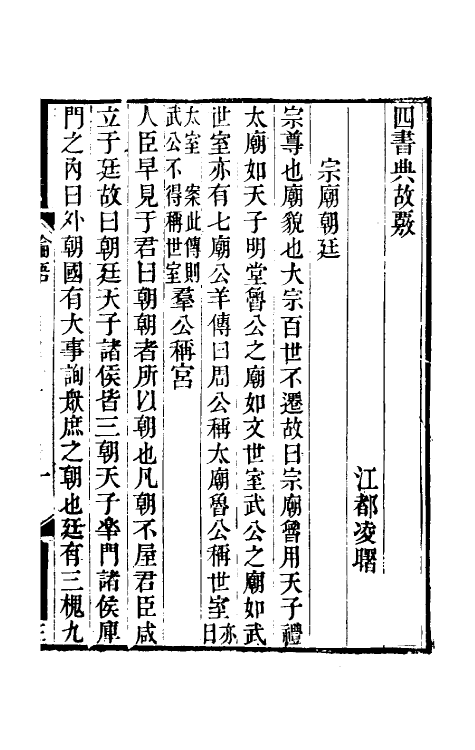 四書典故覈
江都凌曙
宗廟朝廷
宗尊也廟貌也大宗百世不遷故曰宗廟魯用天子禮
太廟如天子明堂魯公之廟如文世室武公之廟如武
世室亦有七廟公羊傳曰周公稱太廟魯公稱世室亦曰
太室 案此傳則武公不得稱世室羣公稱宮
人臣早見于君曰朝朝者所以朝也凡朝不屋君臣咸
立于廷故曰朝廷天子諸侯皆三朝天子皋門諸侯庫
門之內曰外朝國有大事詢衆庶之朝也廷有三槐九
論語
一